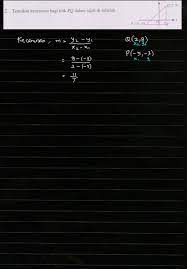 2 Tentukan kecerunan bagi titik PQ dalam rajah di sebelah.
Kecerunan, m = y₂ - y₁
x₂ - x₁
Q(2,8)
x₂ y₂
P(-5,-3)
x₁ y₁
= 8-(-3)
2-(-5)
= 11
7